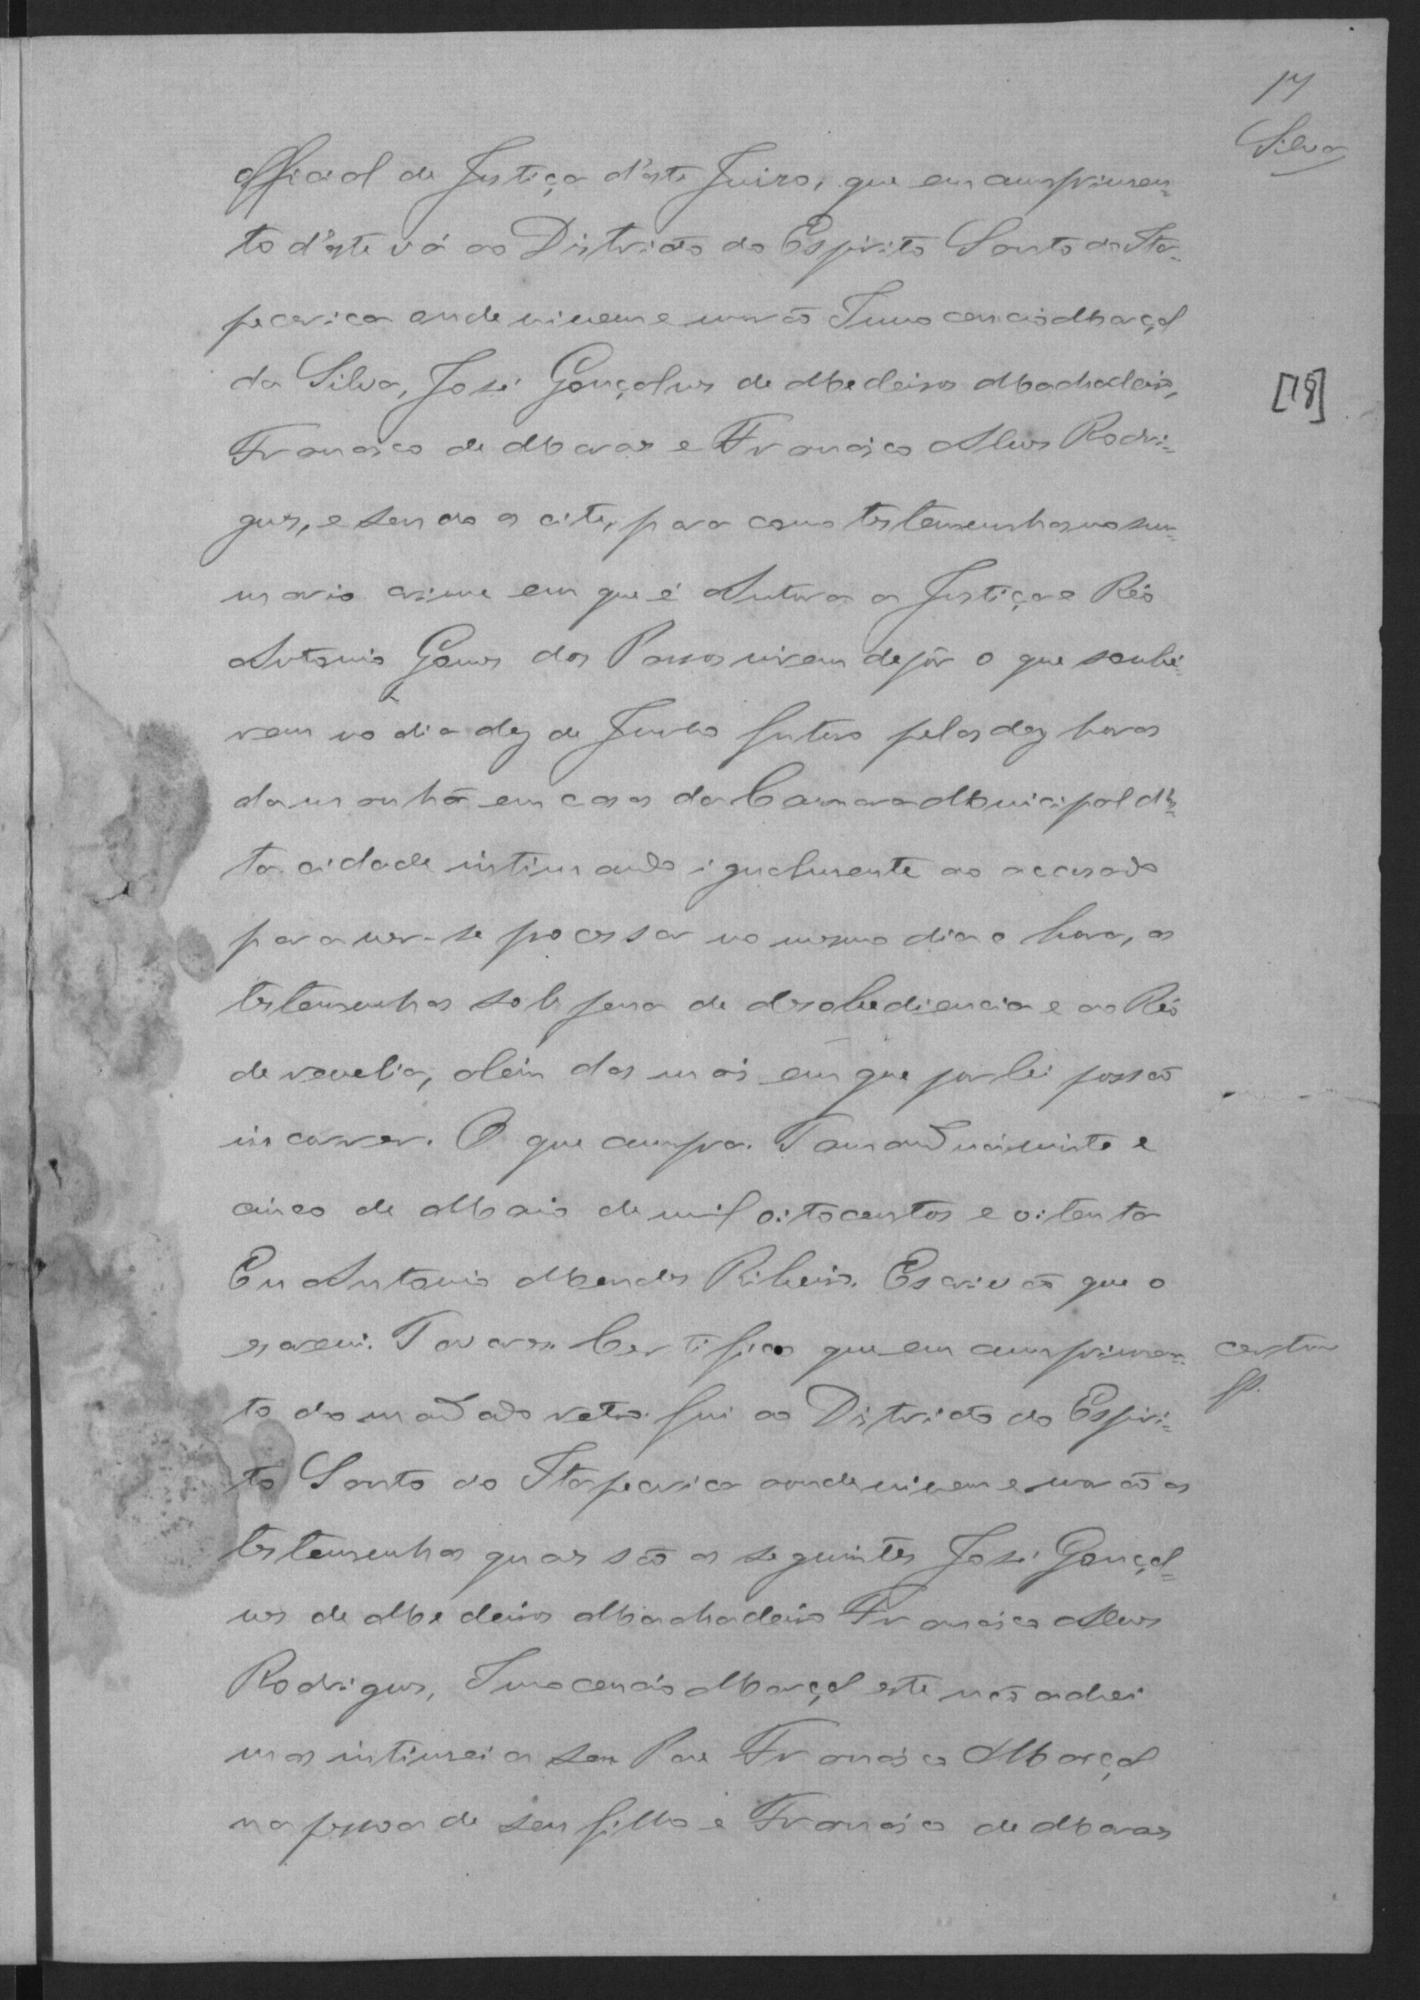 17
Silva
official de Justiça d'este Juizo, que em cumprimen=
to d'este vá ao Districto do Espirito Santo da Ita=
pecerica onde vivem e morão Innocencio Marçal
da Silva, José Gonçalves de Medeiros Machadeiro,
[18]
Francisco de Moraes e Francisco Alves Rodri=
gues, e sendo os cite, para como testemunhas no sum=
mario crime em que é Autora a Justiça e Réo
Antonio Gomes dos Passos virem depôr o que soube=
rem no dia dez de Junho futuro pelas dez horas
da manhã em casa da Camara Municipal d'es=
ta cidade intimando igualmente ao accusado
para ver-se processar no mesmo dia e hora, as
testemunhas sob pena de desobediencia e ao Réo
de revelia, alem das mais em que por lei possão
incorrer. O que cumpra. Tamanduá vinte e
cinco de Maio de mil oitocentos e oitenta
Eu Antonio Mendes Ribeiro. Escrivão que o
escrevi. Tavares. Certifico que em cumprimen=
to do mandado retro fui ao Districto do Espiri=
to Santo do Itapecerica aonde vivem e morão as
testemunhas quaes são as seguintes José Gonçal=
ves de Medeiros Machadeiro Francisco Alves
Rodrigues, Innocencio Marçal este não achei
mas intimei a seu Pae Francisco Marçal
na pessoa de seu filho e Francisco de Moraes